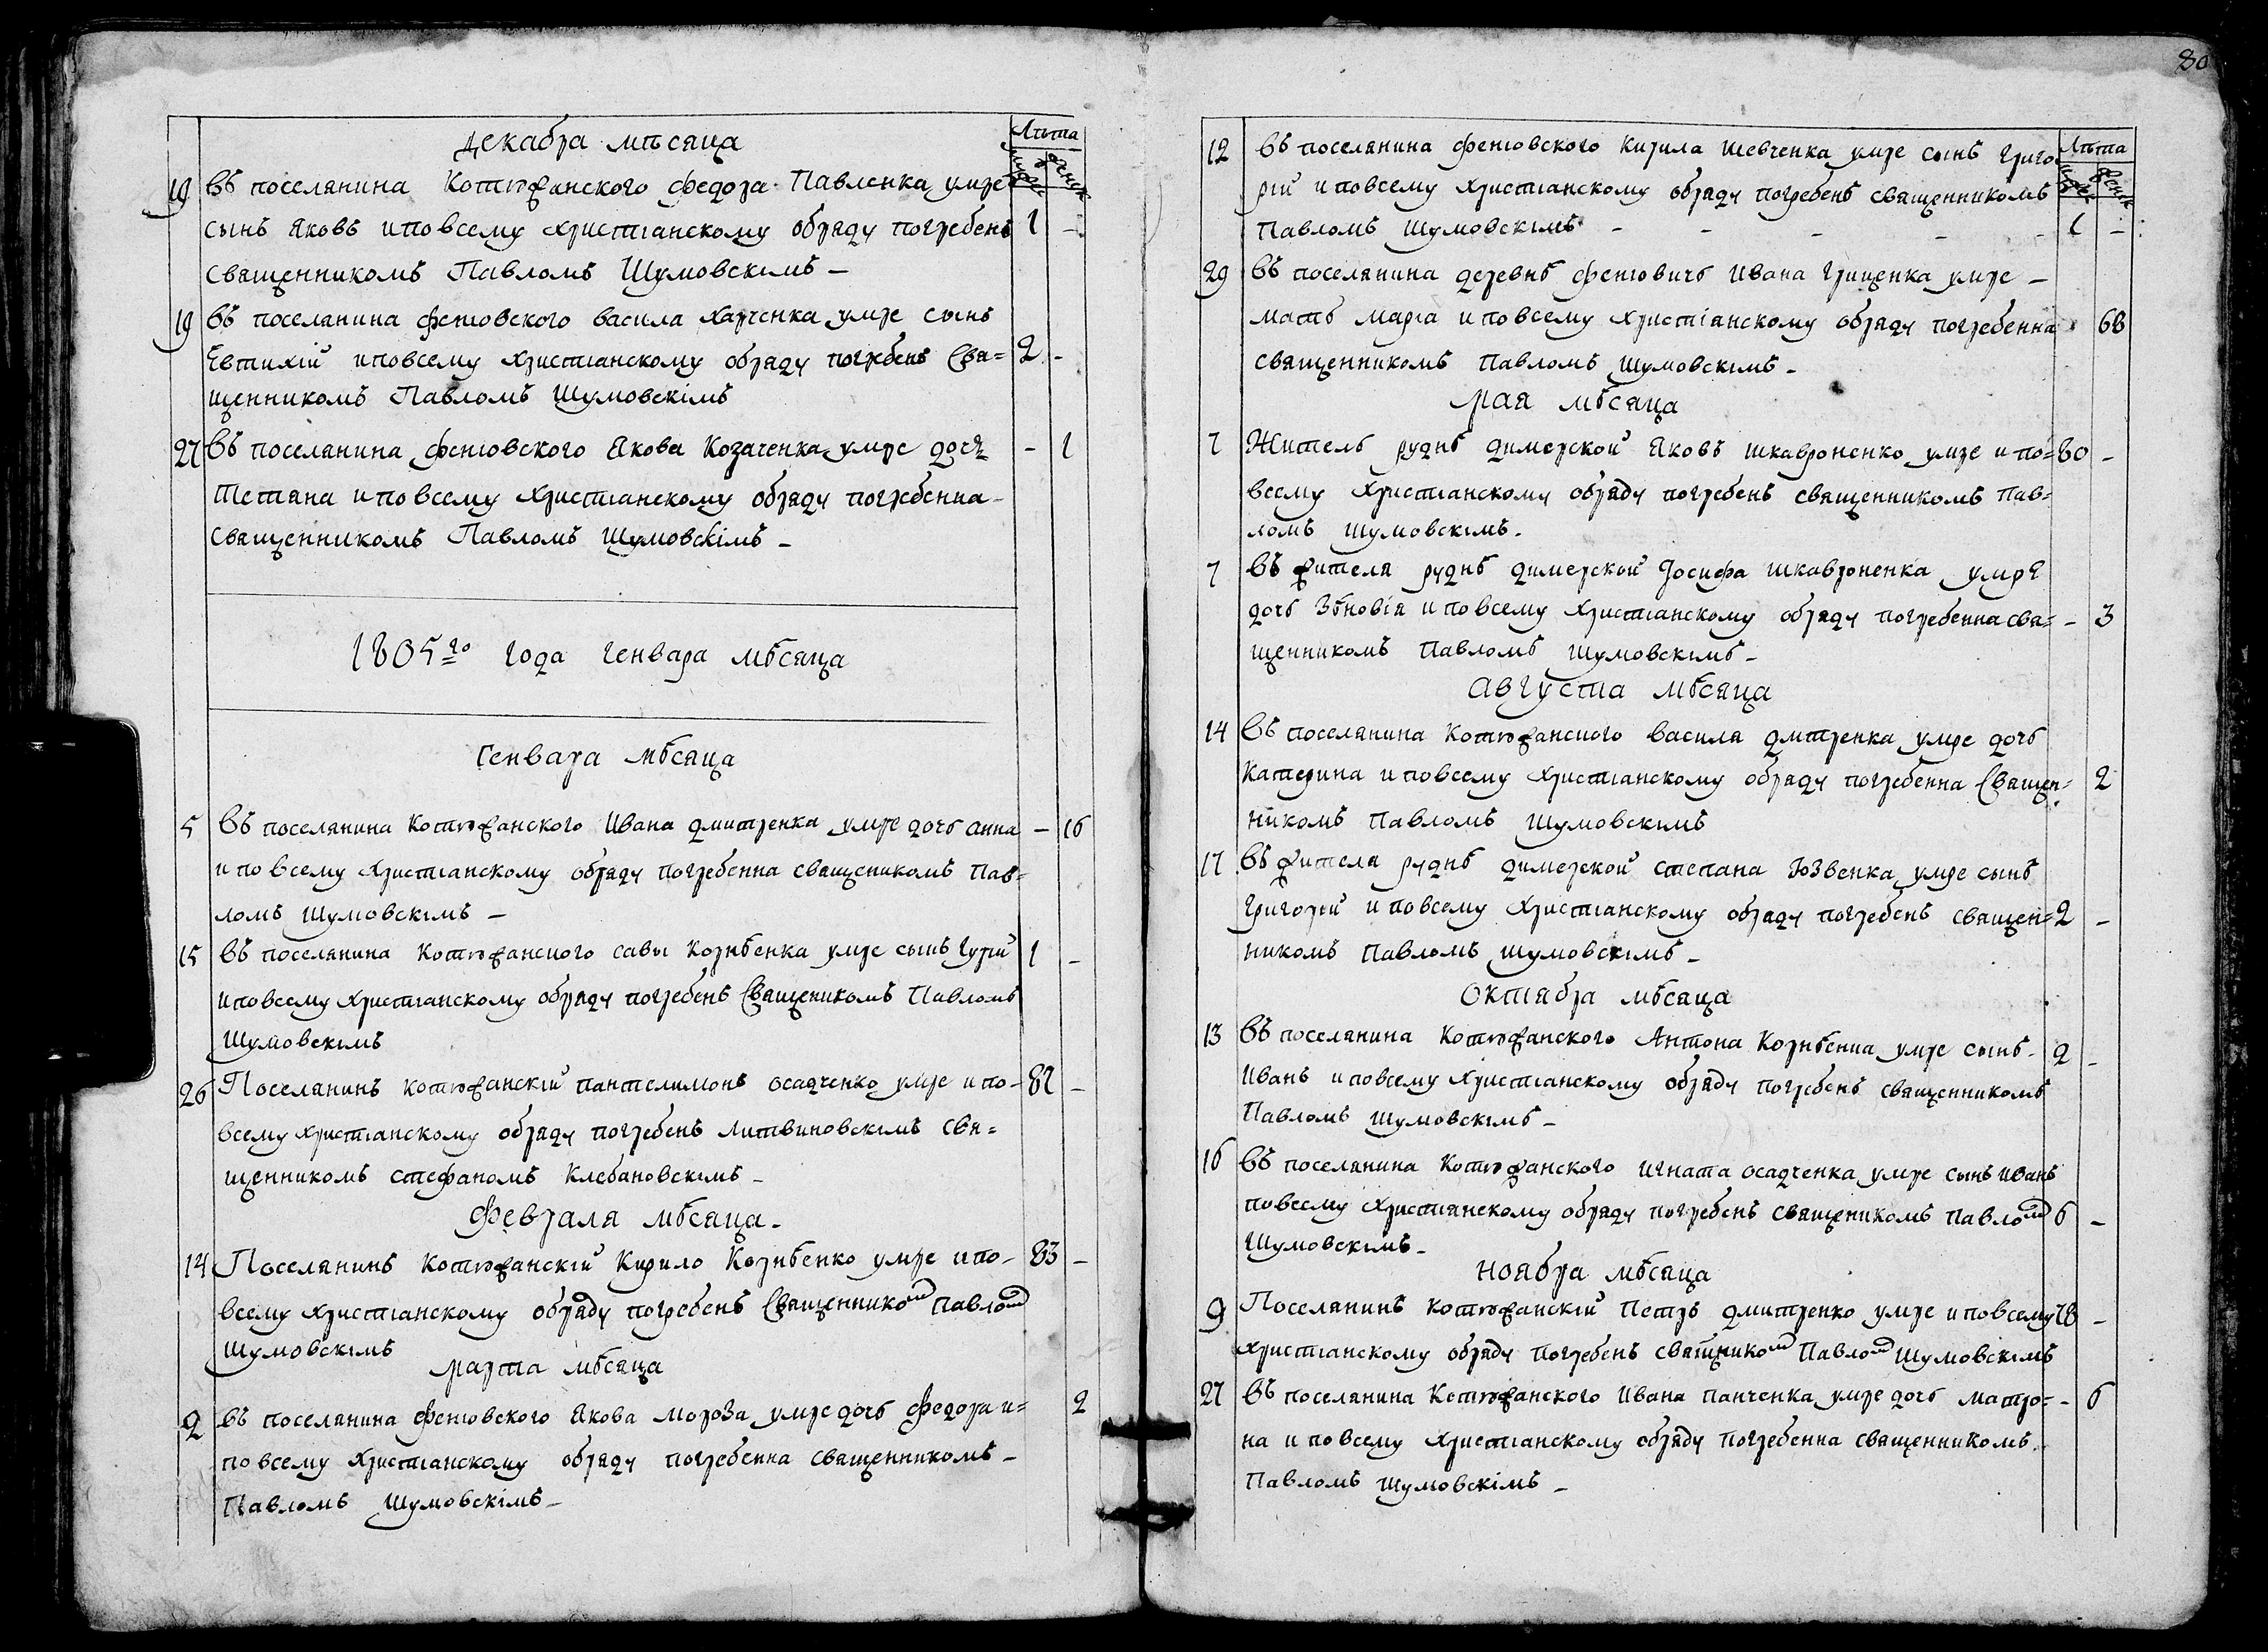 Декабря мѣсяца
Лѣта
19 въ поселянина Котюжанского Федора Павленка умре
сынъ Яковъ и по всему христіанскому обряду погребенъ 1 -
священникомъ Павломъ Шумовскімъ -
19 въ поселянина Фенювского Васила Харченка умре сынъ
Евтихій и по всему христіанскому обряду погребенъ Свя= 2 -
щенникомъ Павломъ Шумовскімъ
27 въ поселянина Фенювского Якова Козаченка умре дочь - 1
Тетяна и по всему христіанскому обряду погребенна
священникомъ Павломъ Шумовскімъ -
1805го года Генваря мѣсяца
Генваря мѣсяца
5 въ поселянина Котюжанского Ивана Дмитренка умре дочь Анна - 16
и по всему христіанскому обряду погребенна священикомъ Пав=
ломъ Шумовскімъ -
15 въ поселянина Котюжанского Савы Корнѣенка умре сынъ Гурій 1 -
и по всему христіанскому обряду погребенъ Священикомъ Павломъ
Шумовскімъ
26 Поселянинъ Котюжанскій Пантелимонъ Осадченко умре и по- 82 -
всему христіанскому обряду погребенъ Литвиновскімъ свя=
щенникомъ Стефаномъ Клебановскімъ -
Февраля мѣсяца -
14 Поселянинъ Котюжанскій Кирило Корнѣенко умре и по- 83 -
всему христіанскому обряду погребенъ Священником Павлом
Шумовскімъ
Марта мѣсяца
2 въ поселянина Фенювского Якова Мороза умре дочь Федора и= 2
по всему христіанскому обряду погребенна священникомъ -
Павломъ Шумовскімъ -
80
Лѣта
12 въ поселянина Фенювского Кирила Шевченка умре сынъ Григо
рій и по всему христіанскому обряду погребенъ священникомъ
Павломъ Шумовскімъ - - - - - 1 -
29 въ поселянина деревнѣ Фенювичъ Ивана Гриценка умре -
мать Марія и по всему христіанскому обряду погребенна 68
священникомъ Павломъ Шумовскімъ -
Мая мѣсяца
7 Житель руднѣ Димерской Яковъ Шкавроненко умре и по= 80 -
всему христіанскому обряду погребенъ священникомъ Пав=
ломъ Шумовскімъ.
7 въ жителя руднѣ Димерской Іосифа Шкавроненка умре
дочь Зѣновія и по всему христіанскому обряду погребенна свя= - 3
щенникомъ Павломъ Шумовскімъ -
Августа мѣсяца
14 въ поселянина Котюжанского Васила Дмтренка умре дочь
Катерина и по всему христіанскому обряду погребенна Священ= 2
никомъ Павломъ Шумовскімъ
17 въ жителя руднѣ Димерской Степана Юзвенка умре сынъ
Григорій и по всему христіанскому обряду погребенъ священ= 2 -
никомъ Павломъ Шумовскімъ -
Октября мѣсяца
13 въ поселянина Котюжанского Антона Корнѣенка умре сынъ - 2 -
Иванъ и по всему христіанскому обряду погребенъ священникомъ
Павломъ Шумовскімъ -
16 въ поселянина Котюжанского Игната Осадченка умре сынъ Иванъ
по всему христіанскому обряду погребенъ священикомъ Павлом 6 -
Шумовскімъ -
Ноября мѣсяца
9 Поселянинъ Котюжанскій Петръ Дмитренко умре и по всему 78 -
христіанскому обряду погребенъ священником Павлом Шумовскімъ
27 въ поселянина Котюжанского Ивана Панченка умре дочь Матро= - 6
на и по всему христіанскому обряду погребенна священникомъ
Павломъ Шумовскімъ -